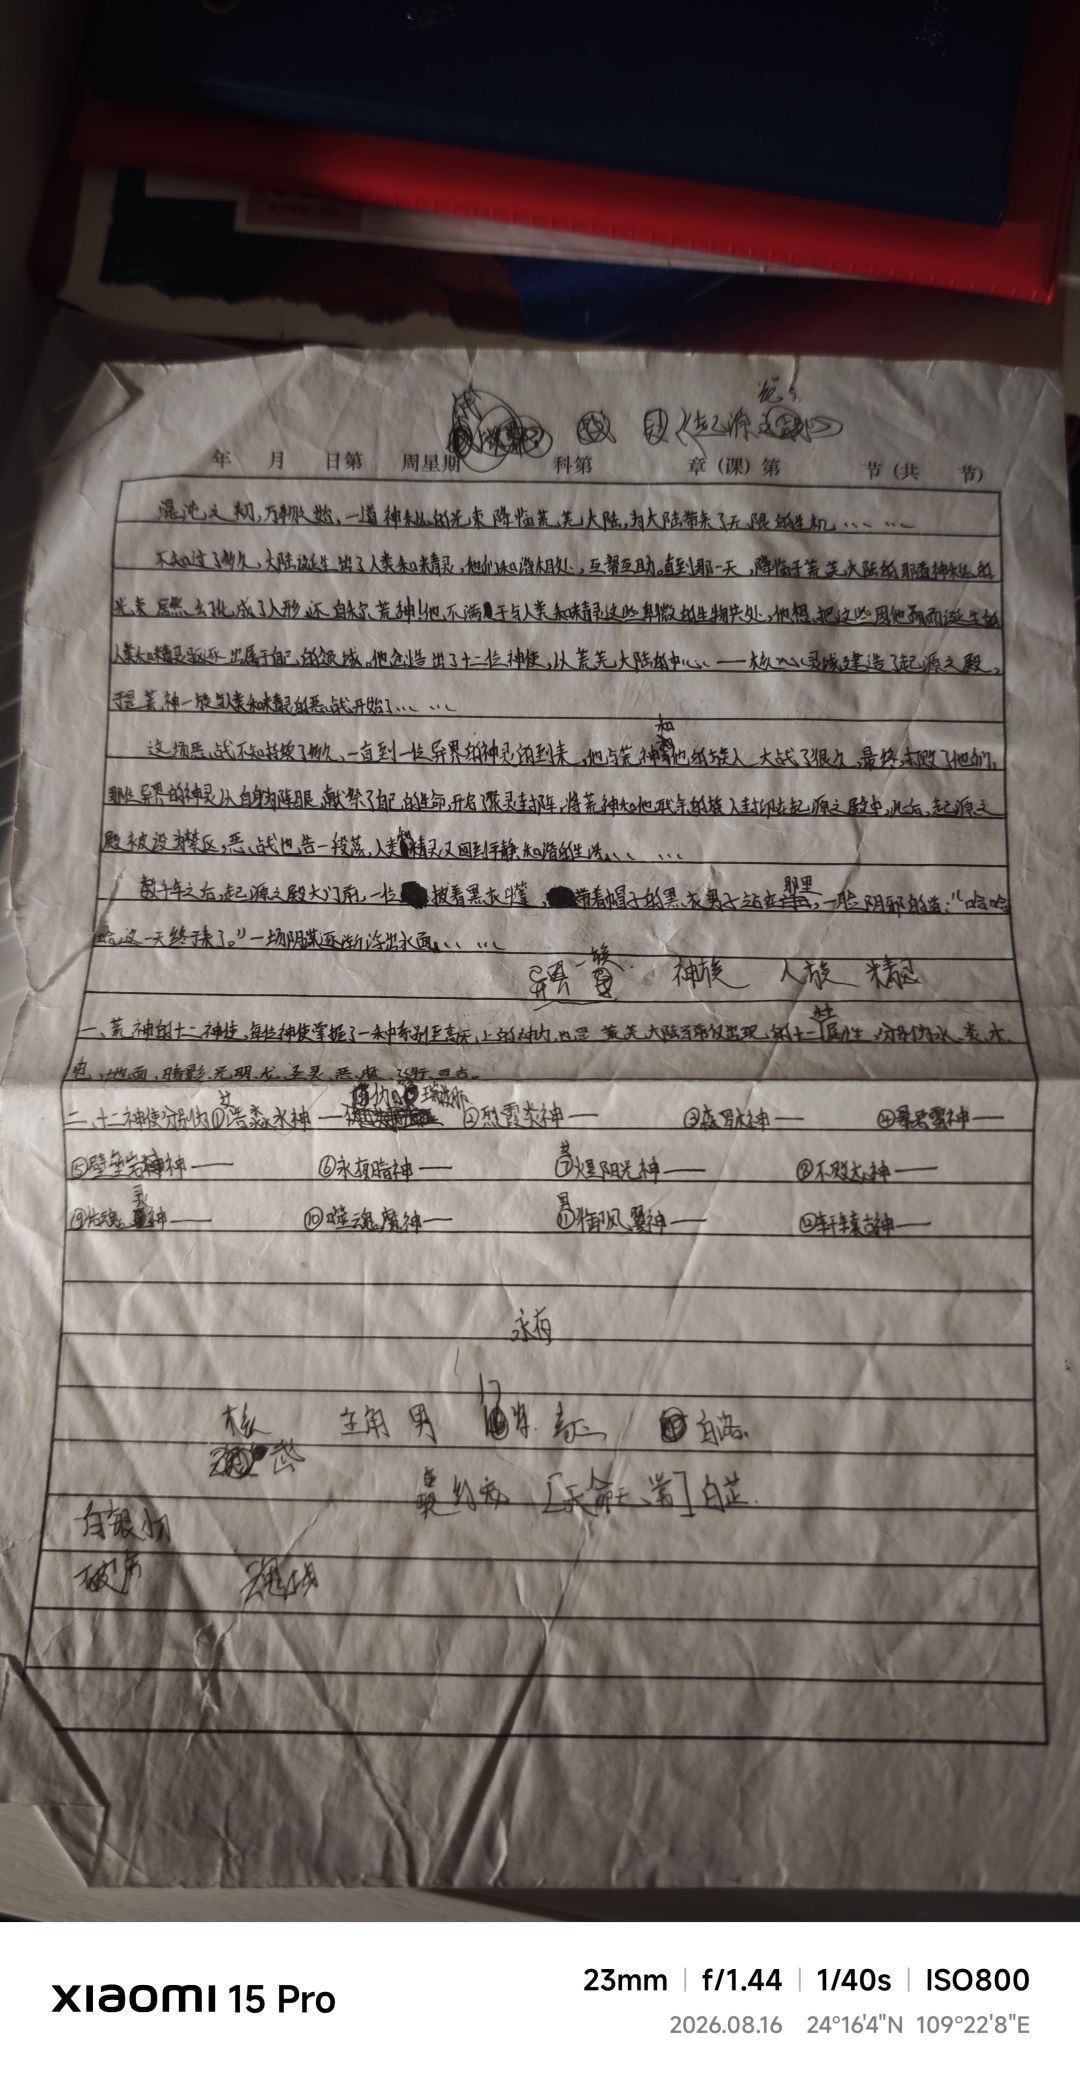 《起源之
年 月 日第 周星期 科第 章(课)第 节(共 节)
混沌之初,万物之始,一道神秘的光束降临荒芜大陆,为大陆带来了无限的生机……
不知过了多久,大陆诞生出了人类和精灵,他们和谐相处,互帮互助,直到那一天,降临于荒芜大陆的那道神秘的
光束居然幻化成了人形还自称荒神!他不满于与人类和精灵这些卑微的生物共处,他想把这些因他而诞生的
人类和精灵驱逐出属于自己的领域。他创造出了十二位神使,从荒芜大陆的中心——核心灵域建造了起源之殿,
于是荒神一族与人类和精灵的恶战开始了……
这场恶战不知持续了多久,一直到一位异界的神灵的到来,他与荒神和他的族人大战了很久,最终打败了他们,
那位异界的神灵从自身为阵眼,献祭了自己的生命开启了聚灵封阵,将荒神和他残余的族人封印在起源之殿中,此后,起源之
殿被设为禁区,恶战也告一段落,人类精灵又回到平静和谐的生活……
数千年之后,起源之殿大门前,一位披着黑衣斗篷,带着帽子的黑衣男子站在那里,一脸阴邪的道:“哈哈
哈,这一天终于来了。”一场阴谋逐渐浮出水面……
异 一族 神族 人族 精灵
一、荒神的十二神使,每位神使掌握了一种系别至高无上的神力,也是荒芜大陆首次出现的十二属性,分别为水、炎、木、
电、地面、暗影、光明、龙、圣灵、恶魔、飞行、亘古。
二、十二神使分别为①浩淼水神— 女 瑞娅娜 ②烈霞炎神— ③森 木神— ④暴君雷神—
⑤壁垒岩神— ⑥永夜暗神— ⑦煜阳光神— 男 ⑧不败龙神—
⑨ 魂灵神— ⑩噬魂魔神— ⑪御风翼神— 男 ⑫ 古神—
永夜
核 主角 男 17岁 白洛
契约 [天命天 ] 白芷
白银
破 魂
XIAOMI 15 Pro
23mm | f/1.44 | 1/40s | ISO800
2026.08.16 24°16'4"N 109°22'8"E